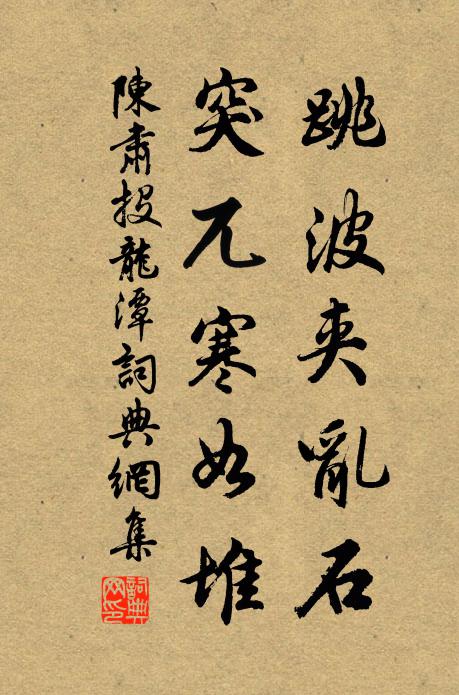 跳波夾亂石
突兀寒如堆
陳肅投龍潭詞典網集
詞典网印